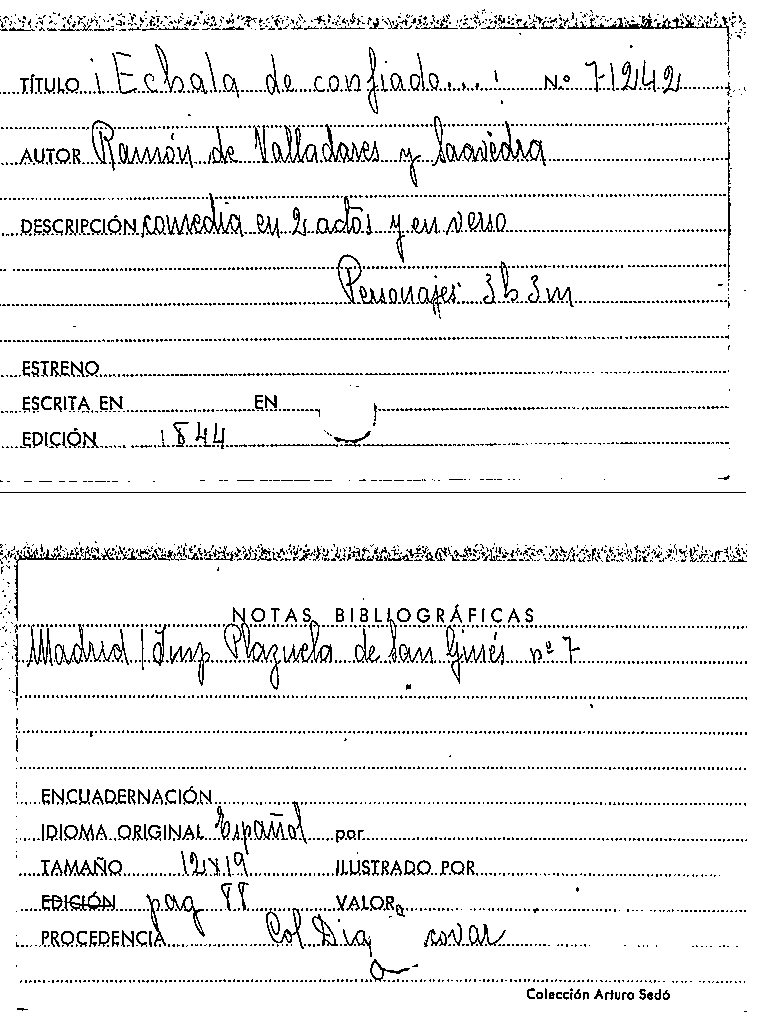 TÍTULO ¡Echala de confiado...! N.º 71242
AUTOR Ramón de Valladares y Saavedra
DESCRIPCIÓN comedia en 2 actos y en verso
Personajes 3h 3m
ESTRENO
ESCRITA EN EN
EDICIÓN 1844
NOTAS BIBLIOGRÁFICAS
Madrid / Imp Plazuela de San Ginés nº 7
ENCUADERNACIÓN
IDIOMA ORIGINAL Español por
TAMAÑO 12x19 ILUSTRADO POR
EDICIÓN pag 88 VALOR
PROCEDENCIA Col Dia
Colección Arturo Sedó